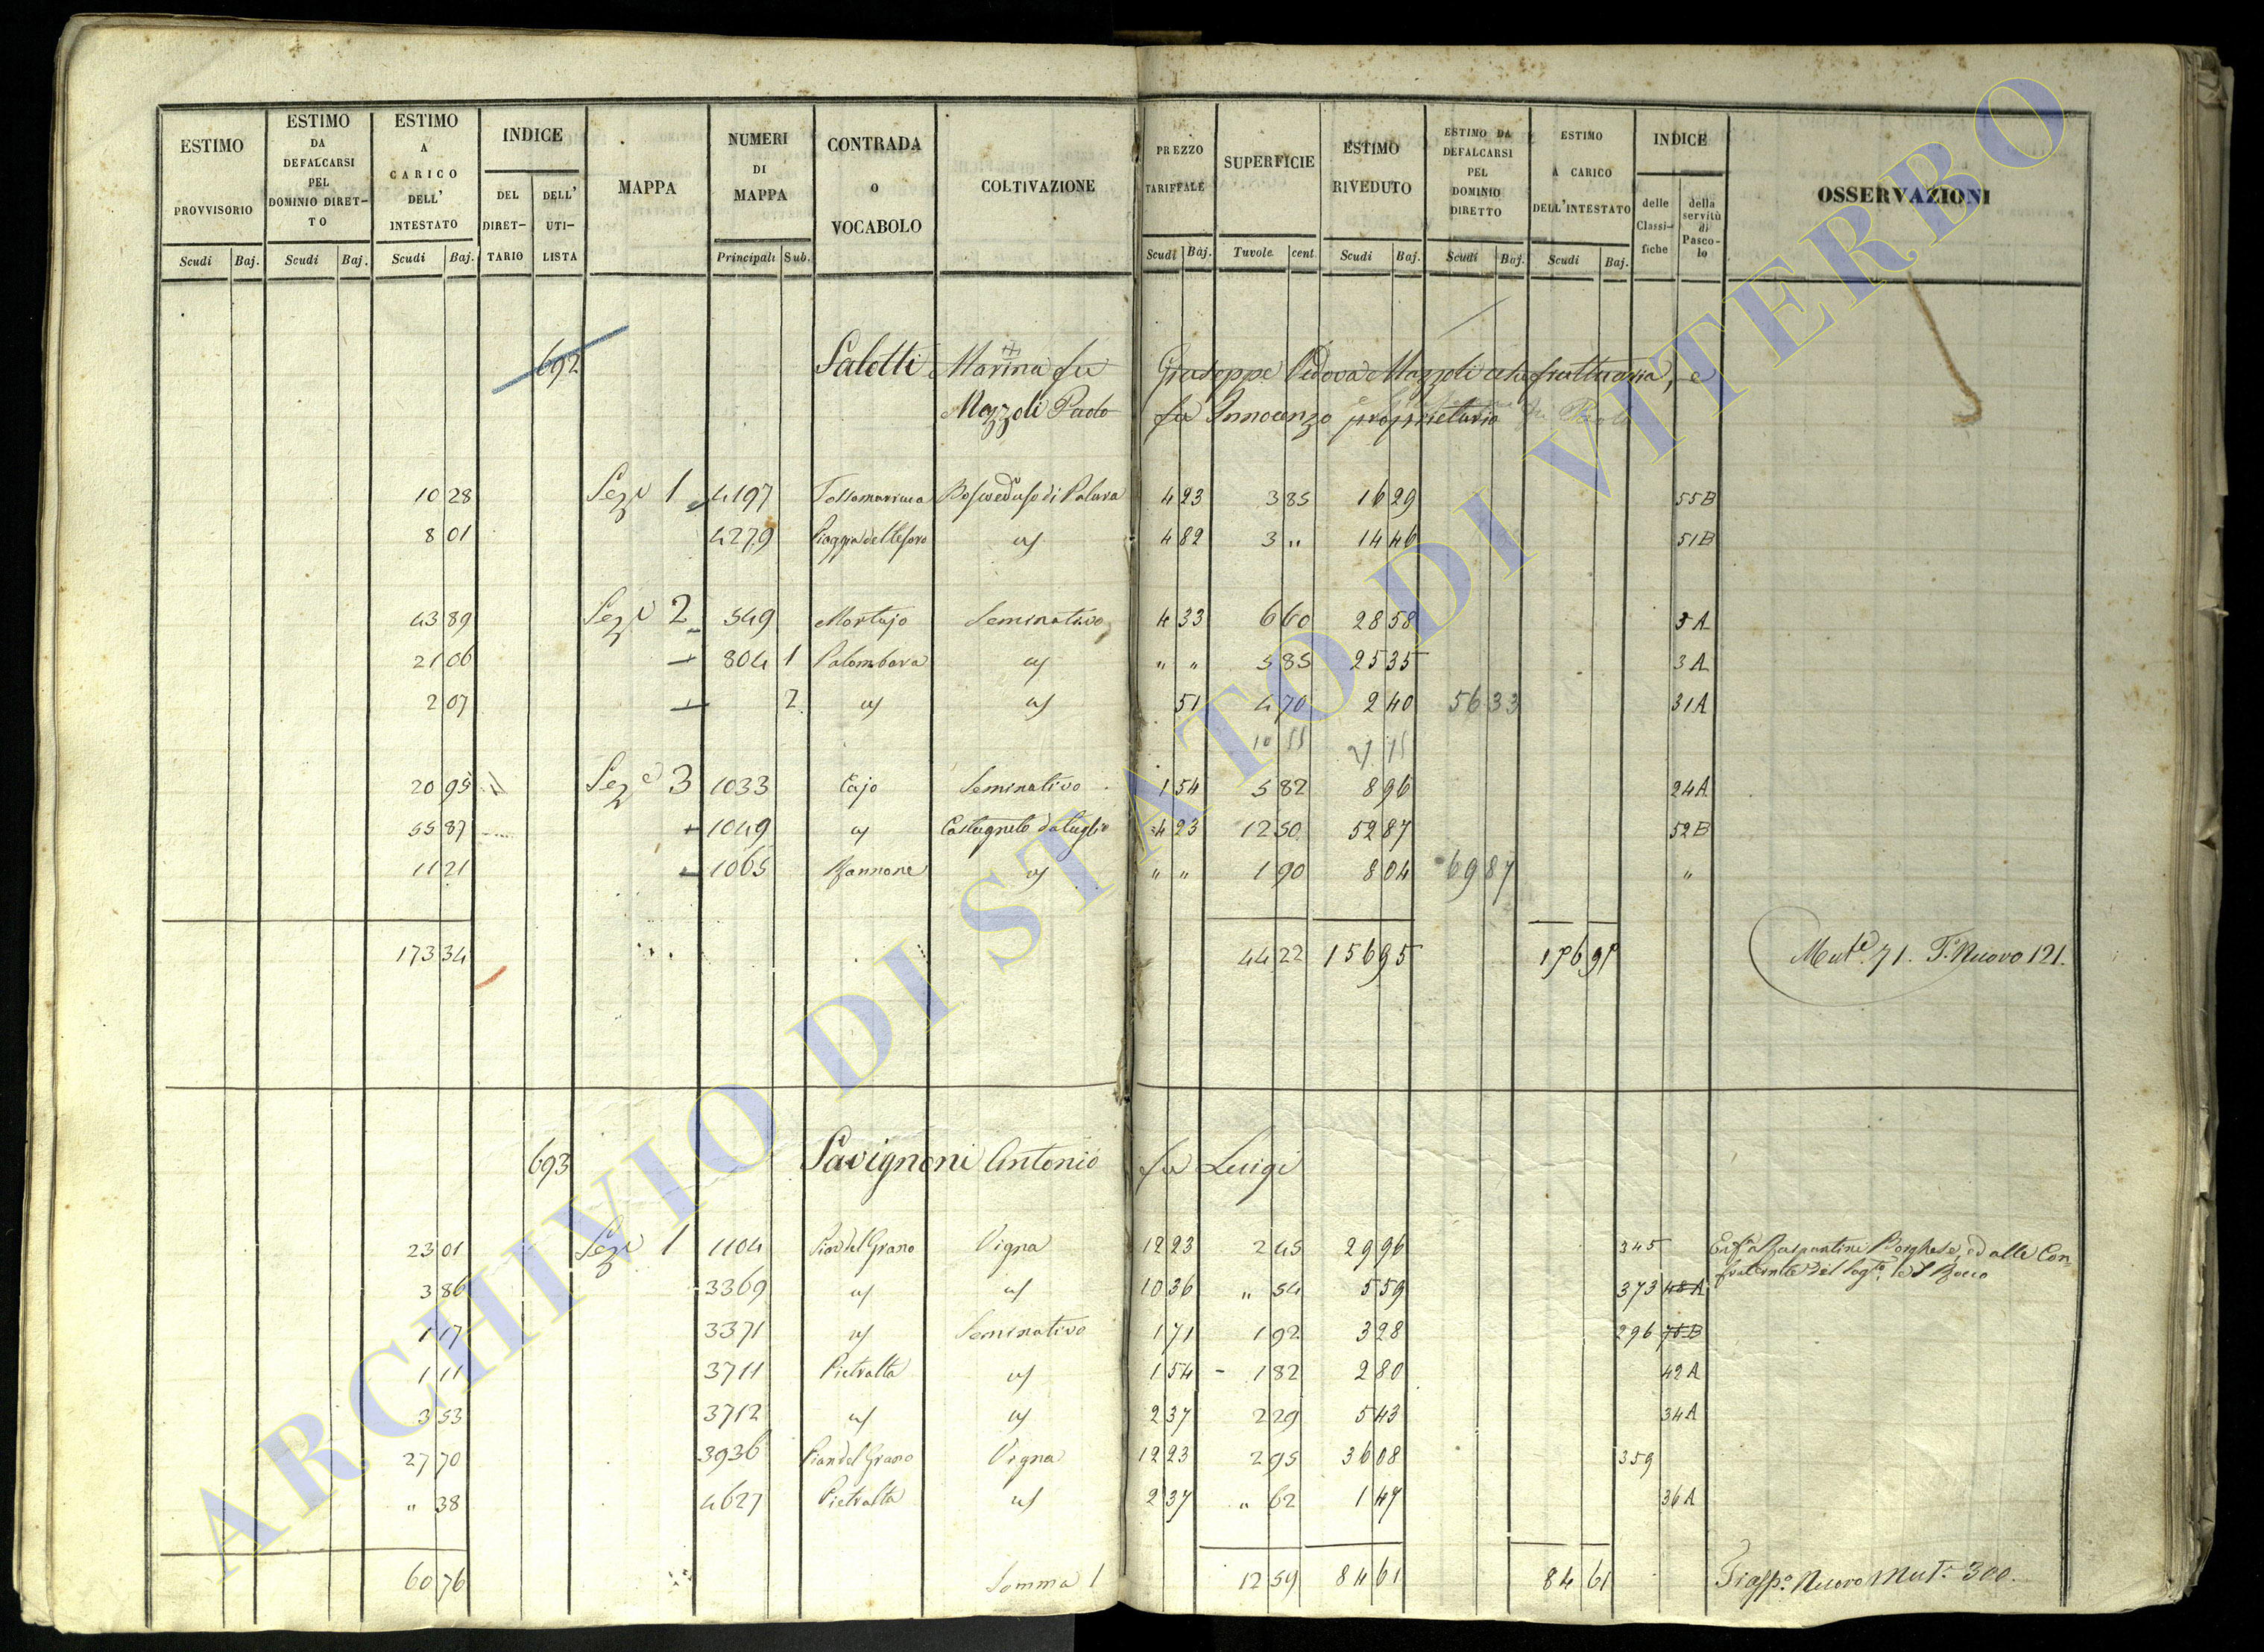 ESTIMO PROVVISORIO Scudi Baj.
ESTIMO DA DEFALCARSI PEL DOMINIO DIRET-TO Scudi Baj.
ESTIMO A CARICO DELL' INTESTATO Scudi Baj.
INDICE DEL DIRET-TARIO DELL' UTI-LISTA
MAPPA
NUMERI DI MAPPA Principali Sub.
CONTRADA o VOCABOLO
COLTIVAZIONE
PREZZO TARIFFALE Scudi Baj.
SUPERFICIE Tavole cent
ESTIMO RIVEDUTO Scudi Baj.
ESTIMO DA DEFALCARSI PEL DOMINIO DIRETTO Scudi Baj.
ESTIMO A CARICO DELL'INTESTATO Scudi Baj.
INDICE delle Classi-fiche della servitù di Pasco-lo
OSSERVAZIONI
692 Salotti Marina fu Giuseppe Vedova Mazzoli usufruttuaria, e
Mazzoli Paolo fu Innocenzo proprietario
10 28 Seze 1 4197 Fossamarruca 4 23 3 85 16 29 55B
8 01 4279 4 82 3 " 14 46 51B
43 89 Seze 2 549 Mortajo Seminativo 4 33 6 60 28 58 3A
21 06 804 1 Palombara " " 5 85 25 35 3A
2 07 2 51 4 70 2 40 56 33 31A
20 95 Seze 3 1033 Cajo Seminativo 1 54 5 82 8 96 24A
55 87 1049 Castagneto da taglio 4 23 12 50 52 87 52B
11 21 1065 " " 1 90 8 04 69 87 "
173 34 44 22 156 95 156 95 Mute 71. T. Nuovo 121.
693 Savignoni Antonio fu Luigi
23 01 Seze 1 1104 Pian del Grano Vigna 12 23 2 45 29 96 345
3 86 3369 10 36 " 54 5 59 373 48A
1 17 3371 Seminativo 1 71 1 92 3 28 296
1 11 3711 Pietralta 1 54 1 82 2 80 42A
3 53 3712 2 37 2 29 5 43 34A
27 70 3936 Pian del Grano Vigna 12 23 2 95 36 08 359
" 38 4627 Pietralta 2 37 " 62 1 47 36A
60 76 Somma 1 12 59 84 61 84 61 Nuovo Mut. 300.
ARCHIVIO DI STATO DI VITERBO